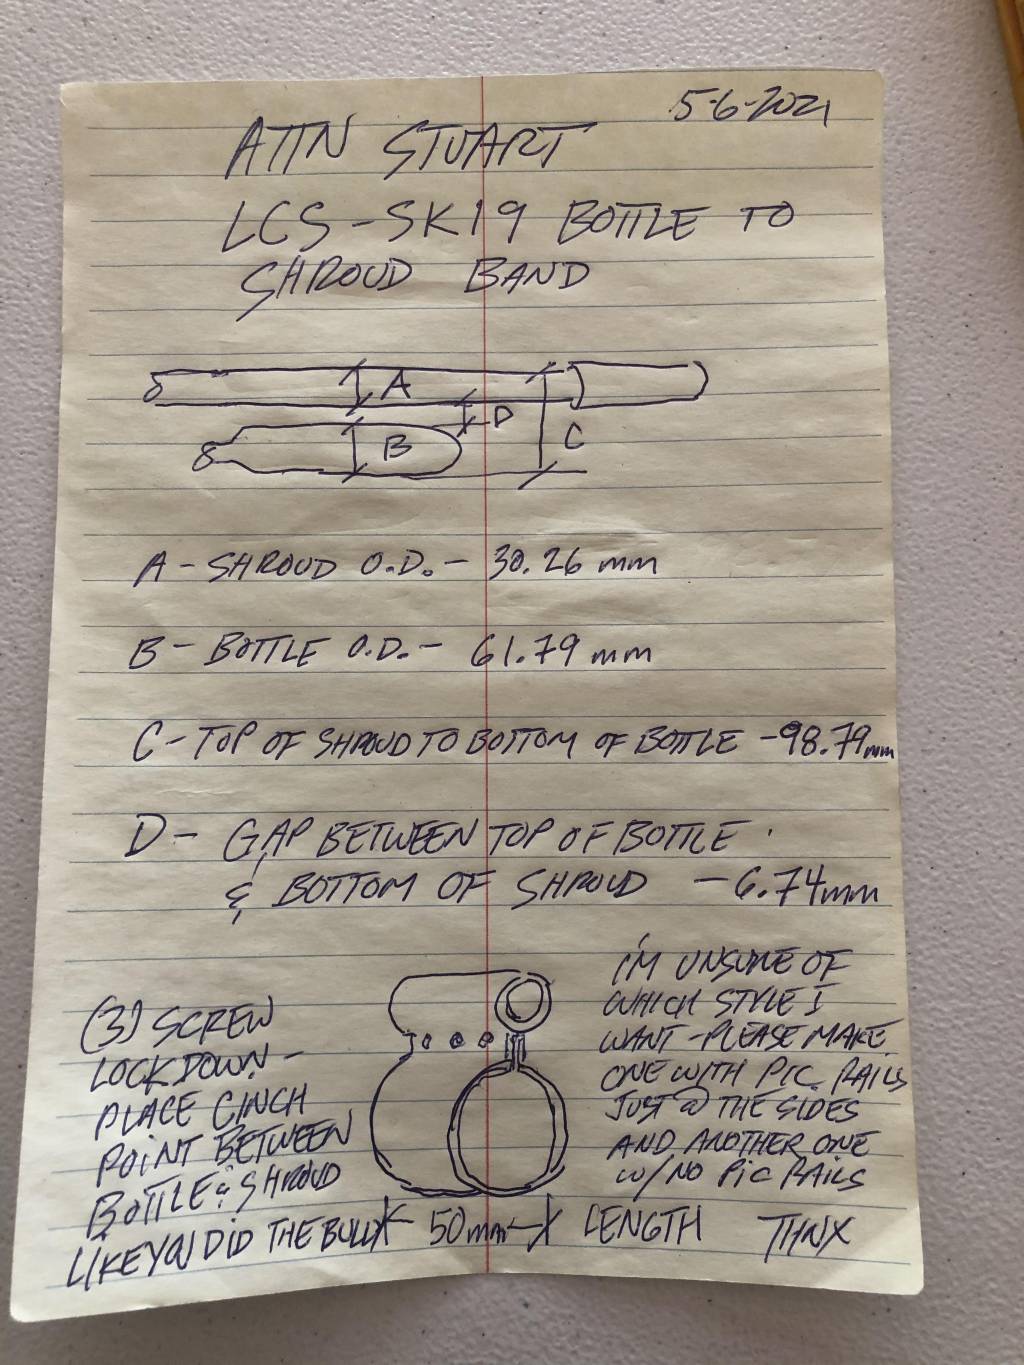 5-6-2021
ATTN STUART
LCS-SK19 BOTTLE TO
SHROUD BAND
A
D
B
C
A - SHROUD O.D. - 30.26 mm
B - BOTTLE O.D. - 61.79 mm
C - TOP OF SHROUD TO BOTTOM OF BOTTLE - 98.79mm
D - GAP BETWEEN TOP OF BOTTLE
& BOTTOM OF SHROUD - 6.74mm
(3) SCREW
LOCKDOWN -
PLACE CINCH
POINT BETWEEN
BOTTLE & SHROUD
LIKE YOU DID THE
I'M UNSURE OF
WHICH STYLE I
WANT - PLEASE MAKE
ONE WITH PIC. RAILS
JUST @ THE SIDES
AND ANOTHER ONE
W/ NO PIC RAILS
50mm LENGTH THNX